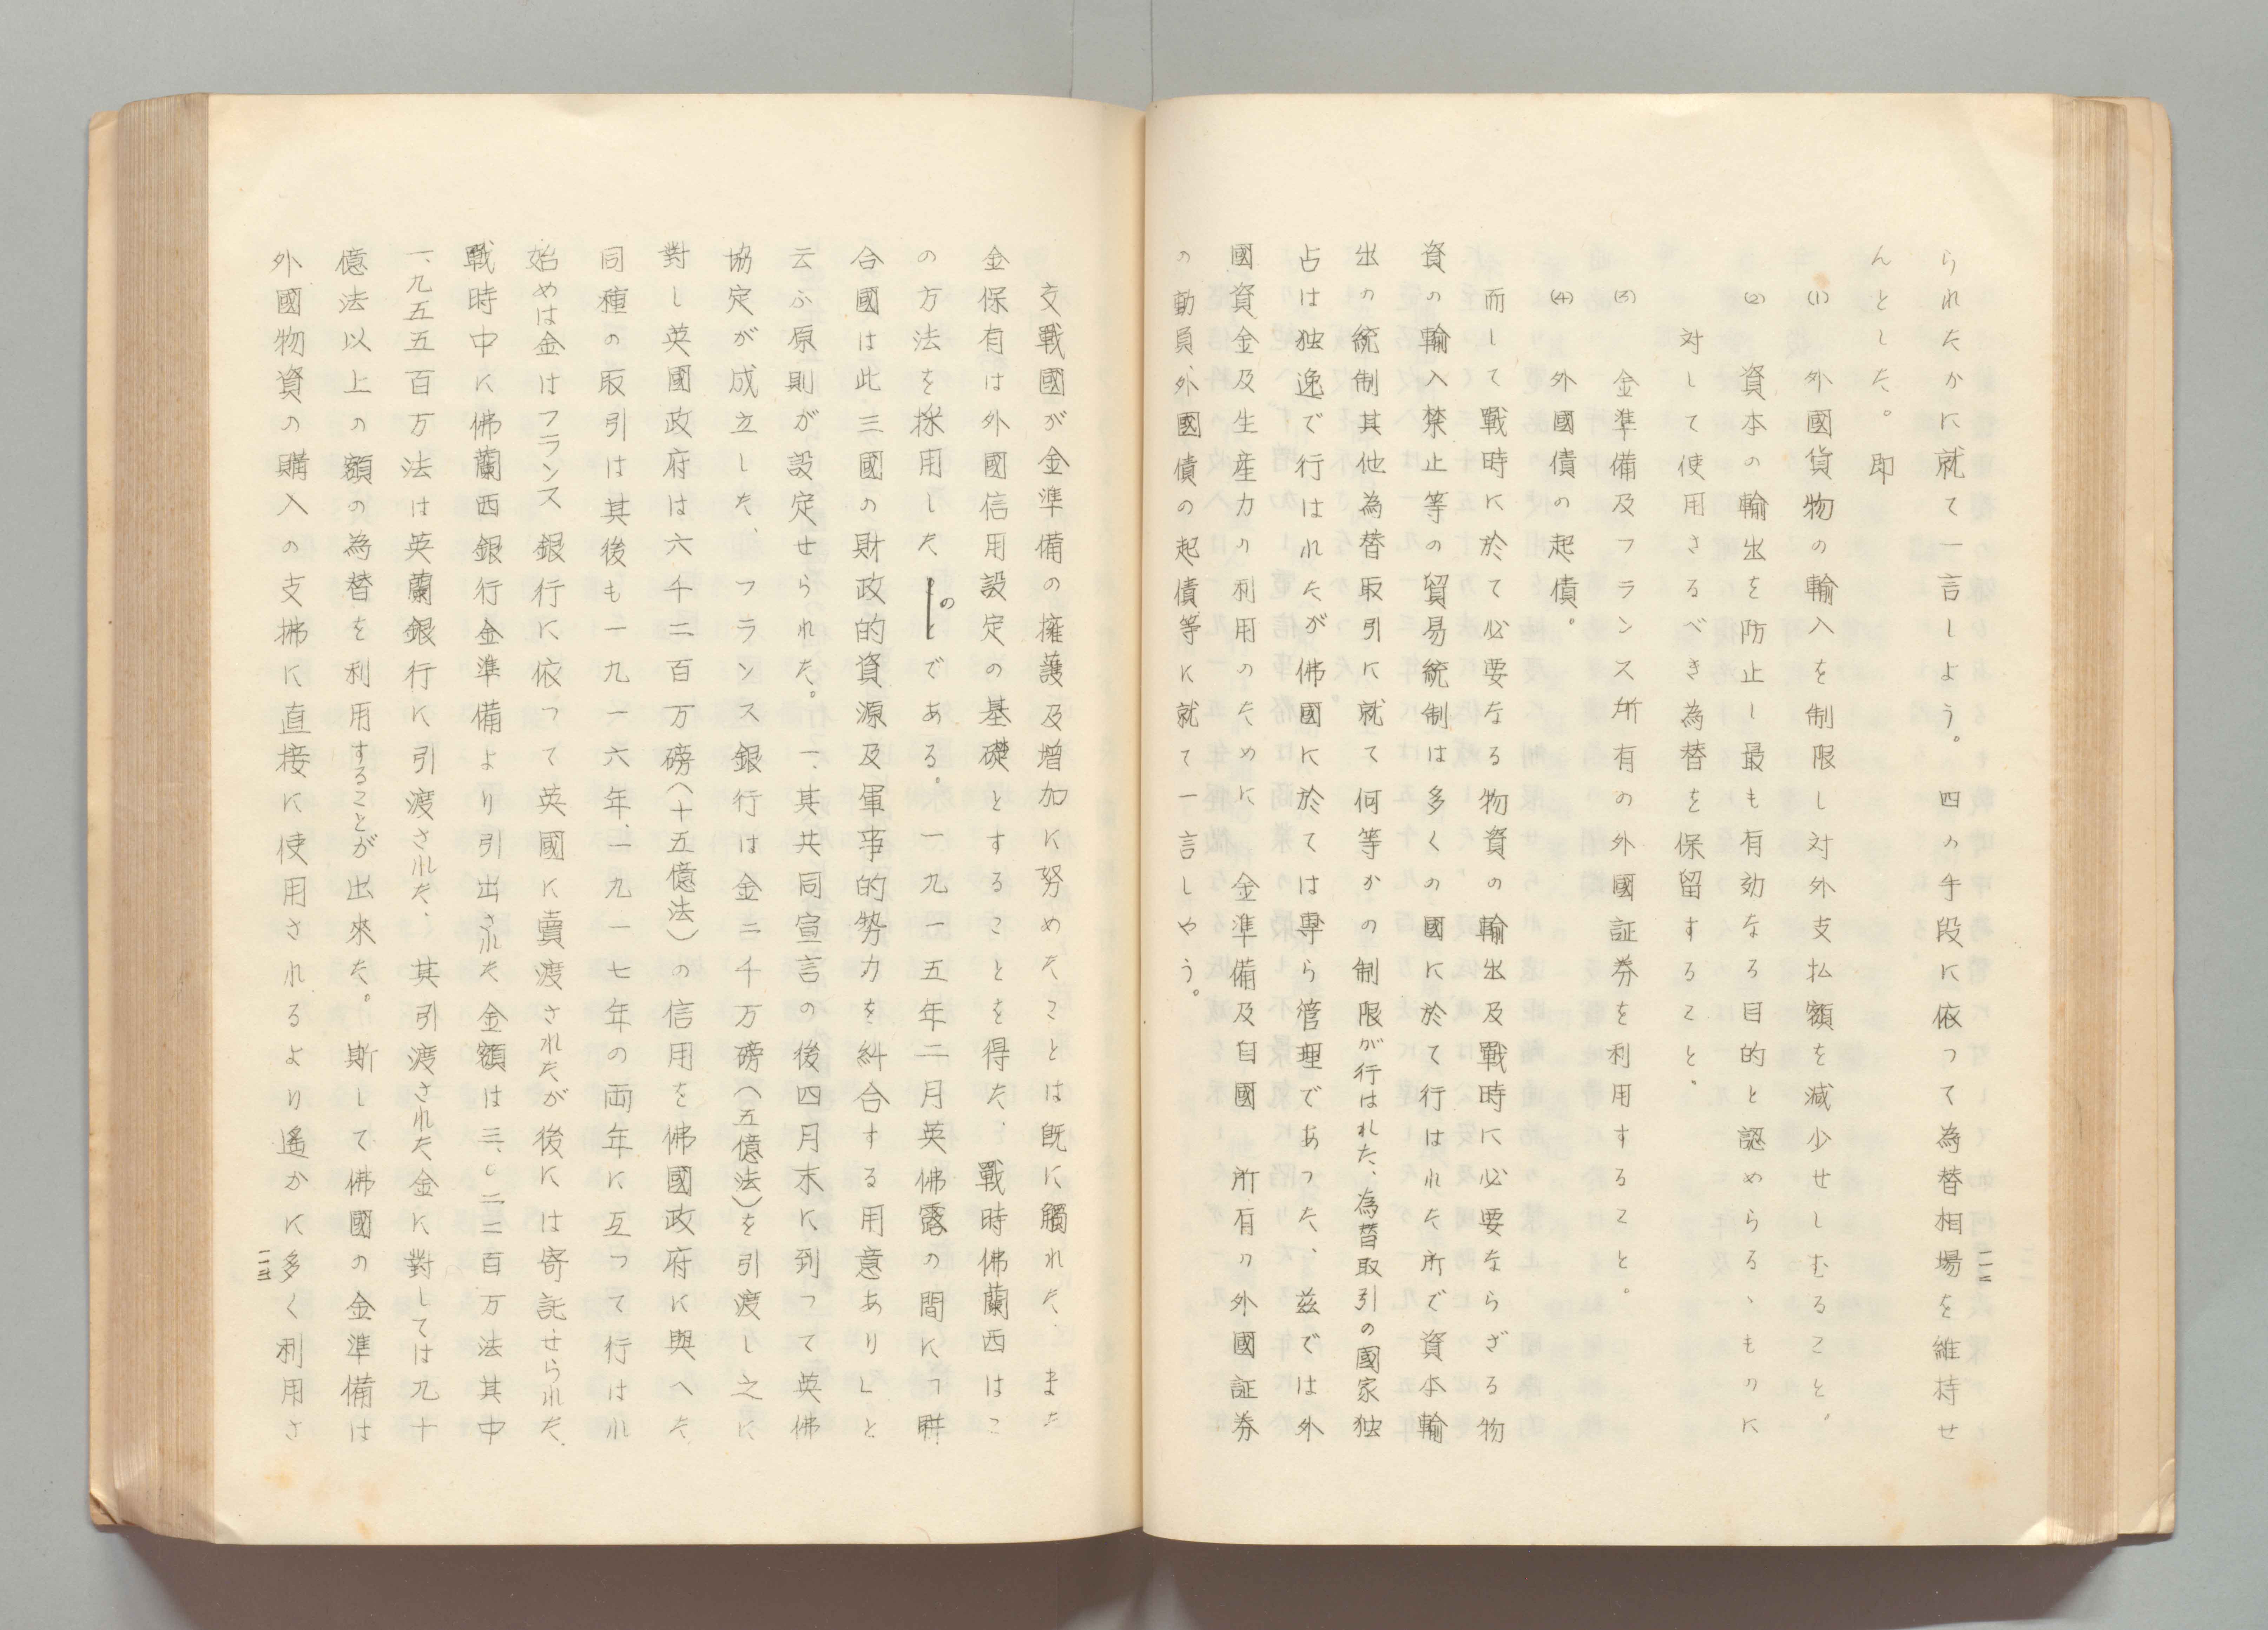 られたかに就て一言しよう。四の手段に依つて為替相場を維持せ
んとした。即
(1) 外國貨物の輸入を制限し対外支払額を減少せしむること。
(2) 資本の輸出を防止し最も有効なる目的と認めらるゝものに
対して使用さるべき為替を保留すること、
(3) 金準備及フランス所有の外國証券を利用すること。
(4) 外國債の起債。
而して戰時に於て必要なる物資の輸出及戰時に必要ならざる物
資の輸入禁止等の貿易統制は多くの國に於て行はれた所で資本輸
出の統制其他為替取引に就て何等かの制限が行はれた、為替取引の國家独
占は独逸で行はれたが佛國に於ては專ら管理であつた、茲では外
國資金及生産力の利用のために金準備及自國所有の外國証券
の動員、外國債の起債等に就て一言しやう。
一一二
交戰國が金準備の擁護及増加に努めたことは既に觸れた、また
金保有は外國信用設定の基礎とすることを得た、戰時佛蘭西はこ
の方法を採用したのである。一九一五年二月英佛露の間につ聯
合國は此三國の財政的資源及軍事的勢力を糾合する用意ありしと
云ふ原則が設定せられた。一、其共同宣言の後四月末に到つて英佛
協定が成立した、フランス銀行は金二千万磅(五億法)を引渡し之に
對し英國政府は六千二百万磅(十五億法)の信用を佛國政府に與へた
同種の取引は其後も一九一六年、一九一七年の両年に亙つて行はれ
始めは金はフランス銀行に依つて英國に賣渡されたが後には寄託せられた、
戰時中に佛蘭西銀行金準備より引出された金額は三、〇二二百万法其中
一、九五五百万法は英蘭銀行に引渡された、其引渡された金に對しては九十
億法以上の額の為替を利用することが出來た。斯して佛國の金準備は
外國物資の購入の支拂に直接に使用されるより遙かに多く利用さ
一一三